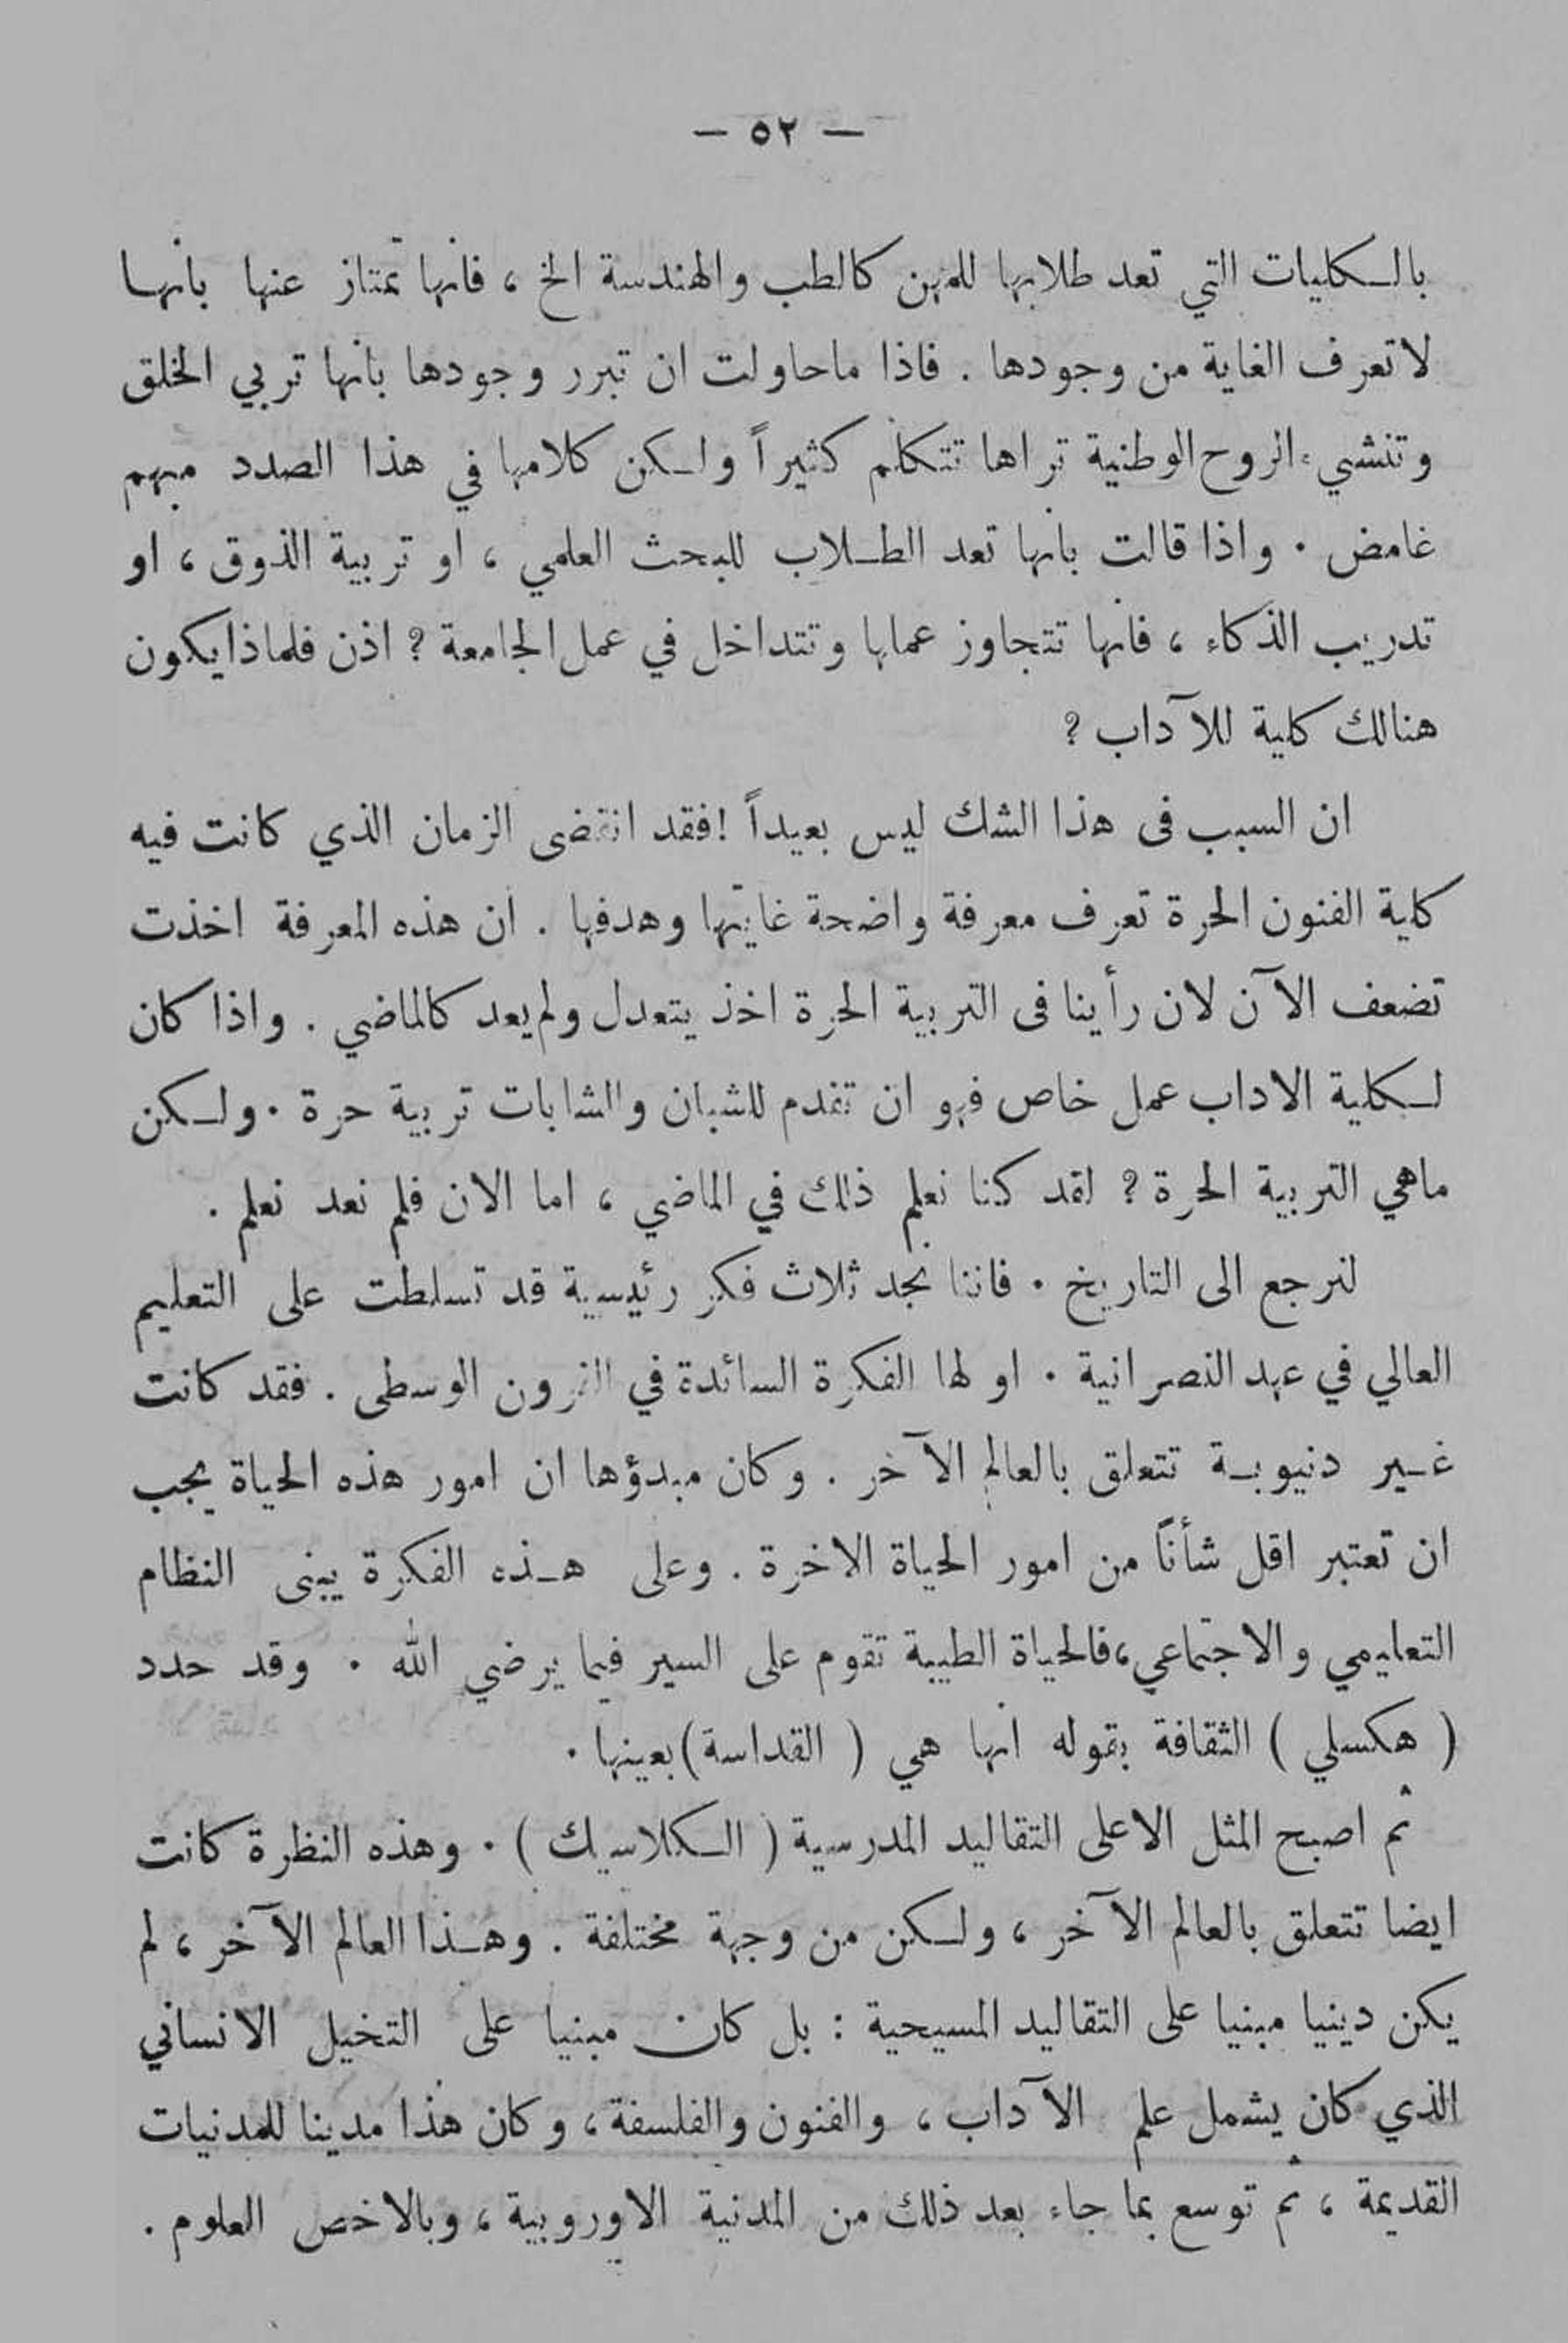 — ٥٢ —
بالكليات التي تعد طلابها للمهن كالطب والهندسة الخ ، فانها تمتاز عنها بانها
لاتعرف الغاية من وجودها . فاذا ماحاولت ان تبرر وجودها بانها تربي الخلق
وتنشيء الروح الوطنية تراها تتكلم كثيراً ولكن كلامها في هذا الصدد مبهم
غامض . واذا قالت بانها تعد الطلاب للبحث العلمي ، او تربية الذوق ، او
تدريب الذكاء ، فانها تتجاوز عملها وتتداخل في عمل الجامعة ؟ اذن فلماذا يكون
هنالك كلية للآداب ؟
ان السبب فى هذا الشك ليس بعيداً ! فقد انقضى الزمان الذي كانت فيه
كلية الفنون الحرة تعرف معرفة واضحة غايتها وهدفها . ان هذه المعرفة اخذت
تضعف الآن لان رأينا فى التربية الحرة اخذ يتعدل ولم يعد كالماضي . واذا كان
لكلية الاداب عمل خاص فهو ان تقدم للشبان والشابات تربية حرة . ولكن
ماهي التربية الحرة ؟ لقد كنا نعلم ذلك في الماضي ، اما الان فلم نعد نعلم .
لنرجع الى التاريخ . فاننا نجد ثلاث فكر رئيسية قد تسلطت على التعليم
العالي في عهد النصرانية . اولها الفكرة السائدة في القرون الوسطى . فقد كانت
غير دنيوية تتعلق بالعالم الآخر . وكان مبدؤها ان امور هذه الحياة يجب
ان تعتبر اقل شأناً من امور الحياة الاخرة . وعلى هذه الفكرة يبنى النظام
التعليمي والاجتماعي ، فالحياة الطيبة تقوم على السير فيما يرضي الله . وقد حدد
( هكسلي ) الثقافة بقوله انها هي ( القداسة ) بعينها .
ثم اصبح المثل الاعلى التقاليد المدرسية ( الكلاسيك ) . وهذه النظرة كانت
ايضا تتعلق بالعالم الآخر ، ولكن من وجهة مختلفة . وهذا العالم الآخر ، لم
يكن دينيا مبنيا على التقاليد المسيحية : بل كان مبنيا على التخيل الانساني
الذي كان يشمل علم الآداب ، والفنون والفلسفة ، وكان هذا مدينا للمدنيات
القديمة ، ثم توسع بما جاء بعد ذلك من المدنية الاوروبية ، وبالاخص العلوم .